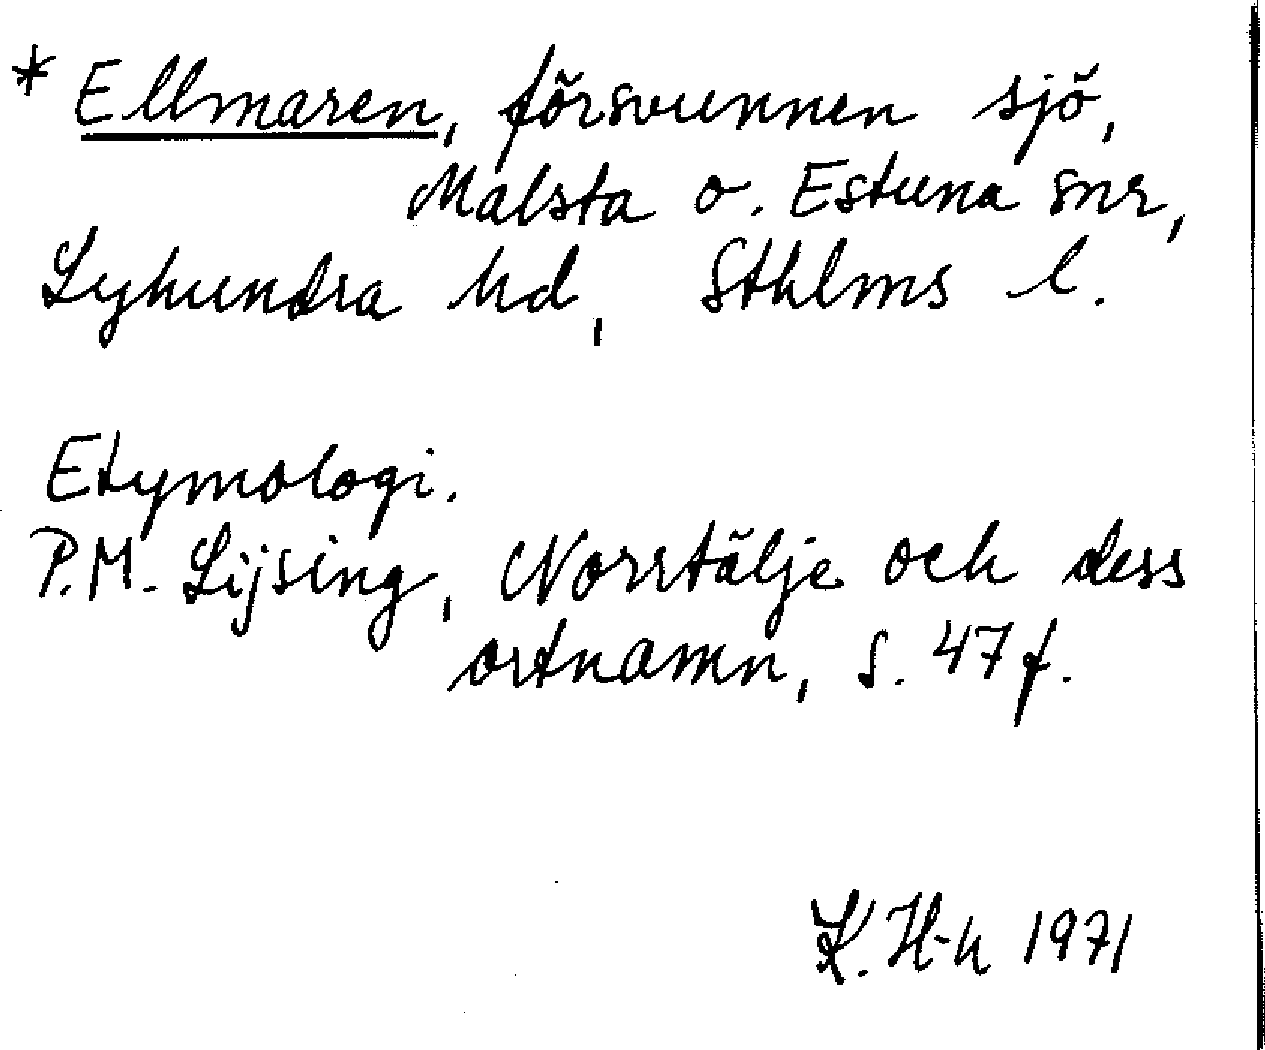 * Ellmaren, försvunnen sjö,
Malsta o. Estuna snr,
Lyhundra hd, Sthlms l.
Etymologi.
P.M. Lijsing, Norrtälje och dess
ortnamn, s. 47 f.
K. H-k 1971